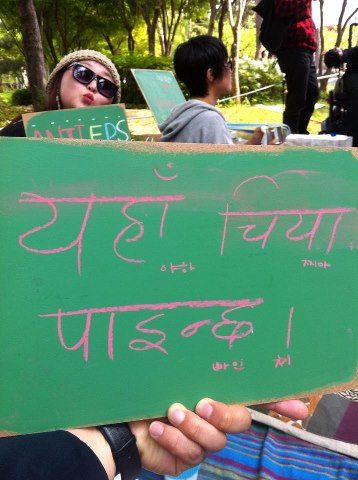 ANTI EPS
यहाँ चिया
야하 찌아
पाइन्छ ।
빠인 체